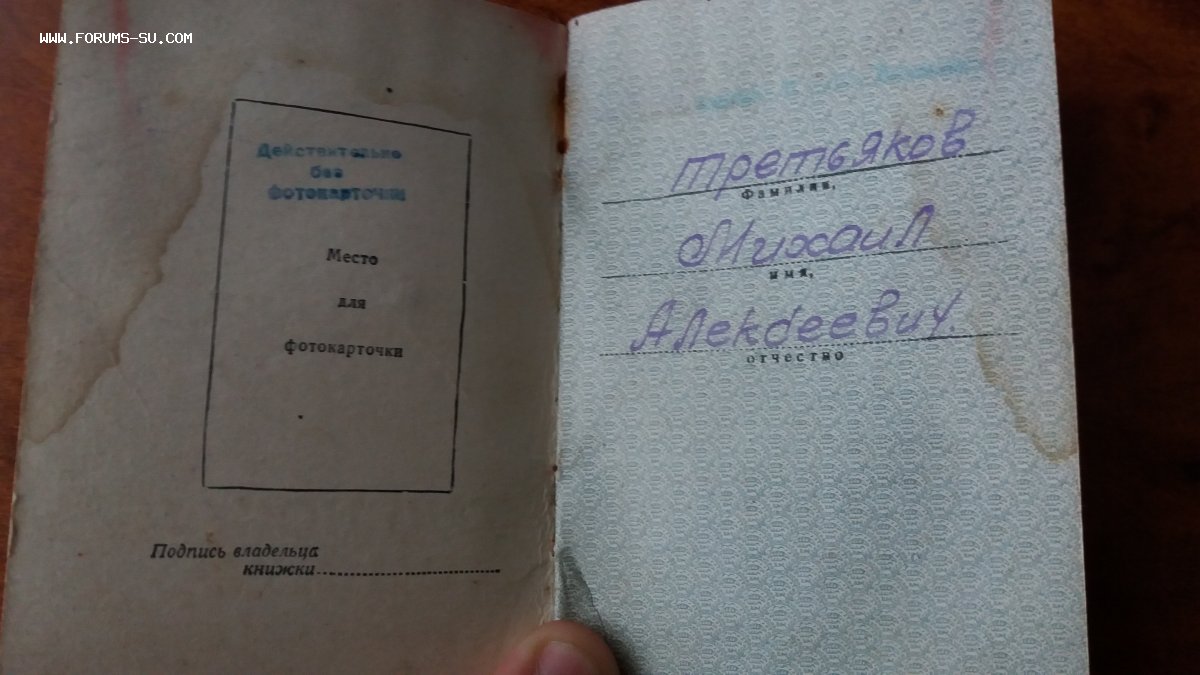 WWW.FORUMS-SU.COM
Действительно
без
фотокарточки
Место
для
фотокарточки
Подпись владельца
книжки
Третьяков
Фамилия,
Михаил
имя,
Алексеевич.
отчество